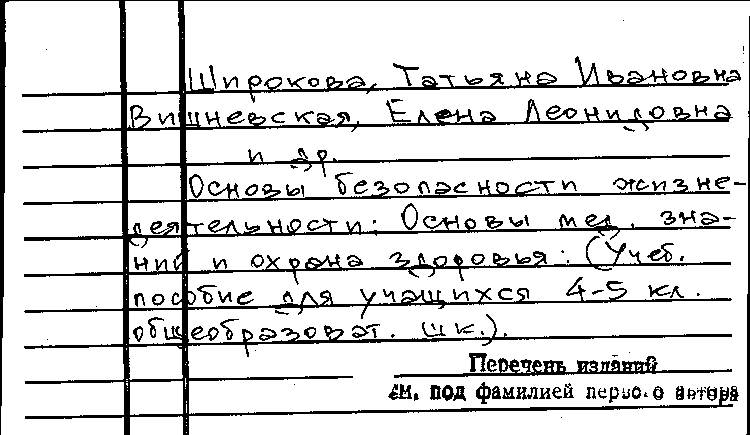 Широкова, Татьяна Ивановна
Вишневская, Елена Леонидовна
и др.
Основы безопасности жизне-
деятельности: Основы мед. зна-
ний и охрана здоровья: (Учеб.
пособие для учащихся 4-5 кл.
общеобразоват. шк.).
Перечень изданий
см. под фамилией первого автора